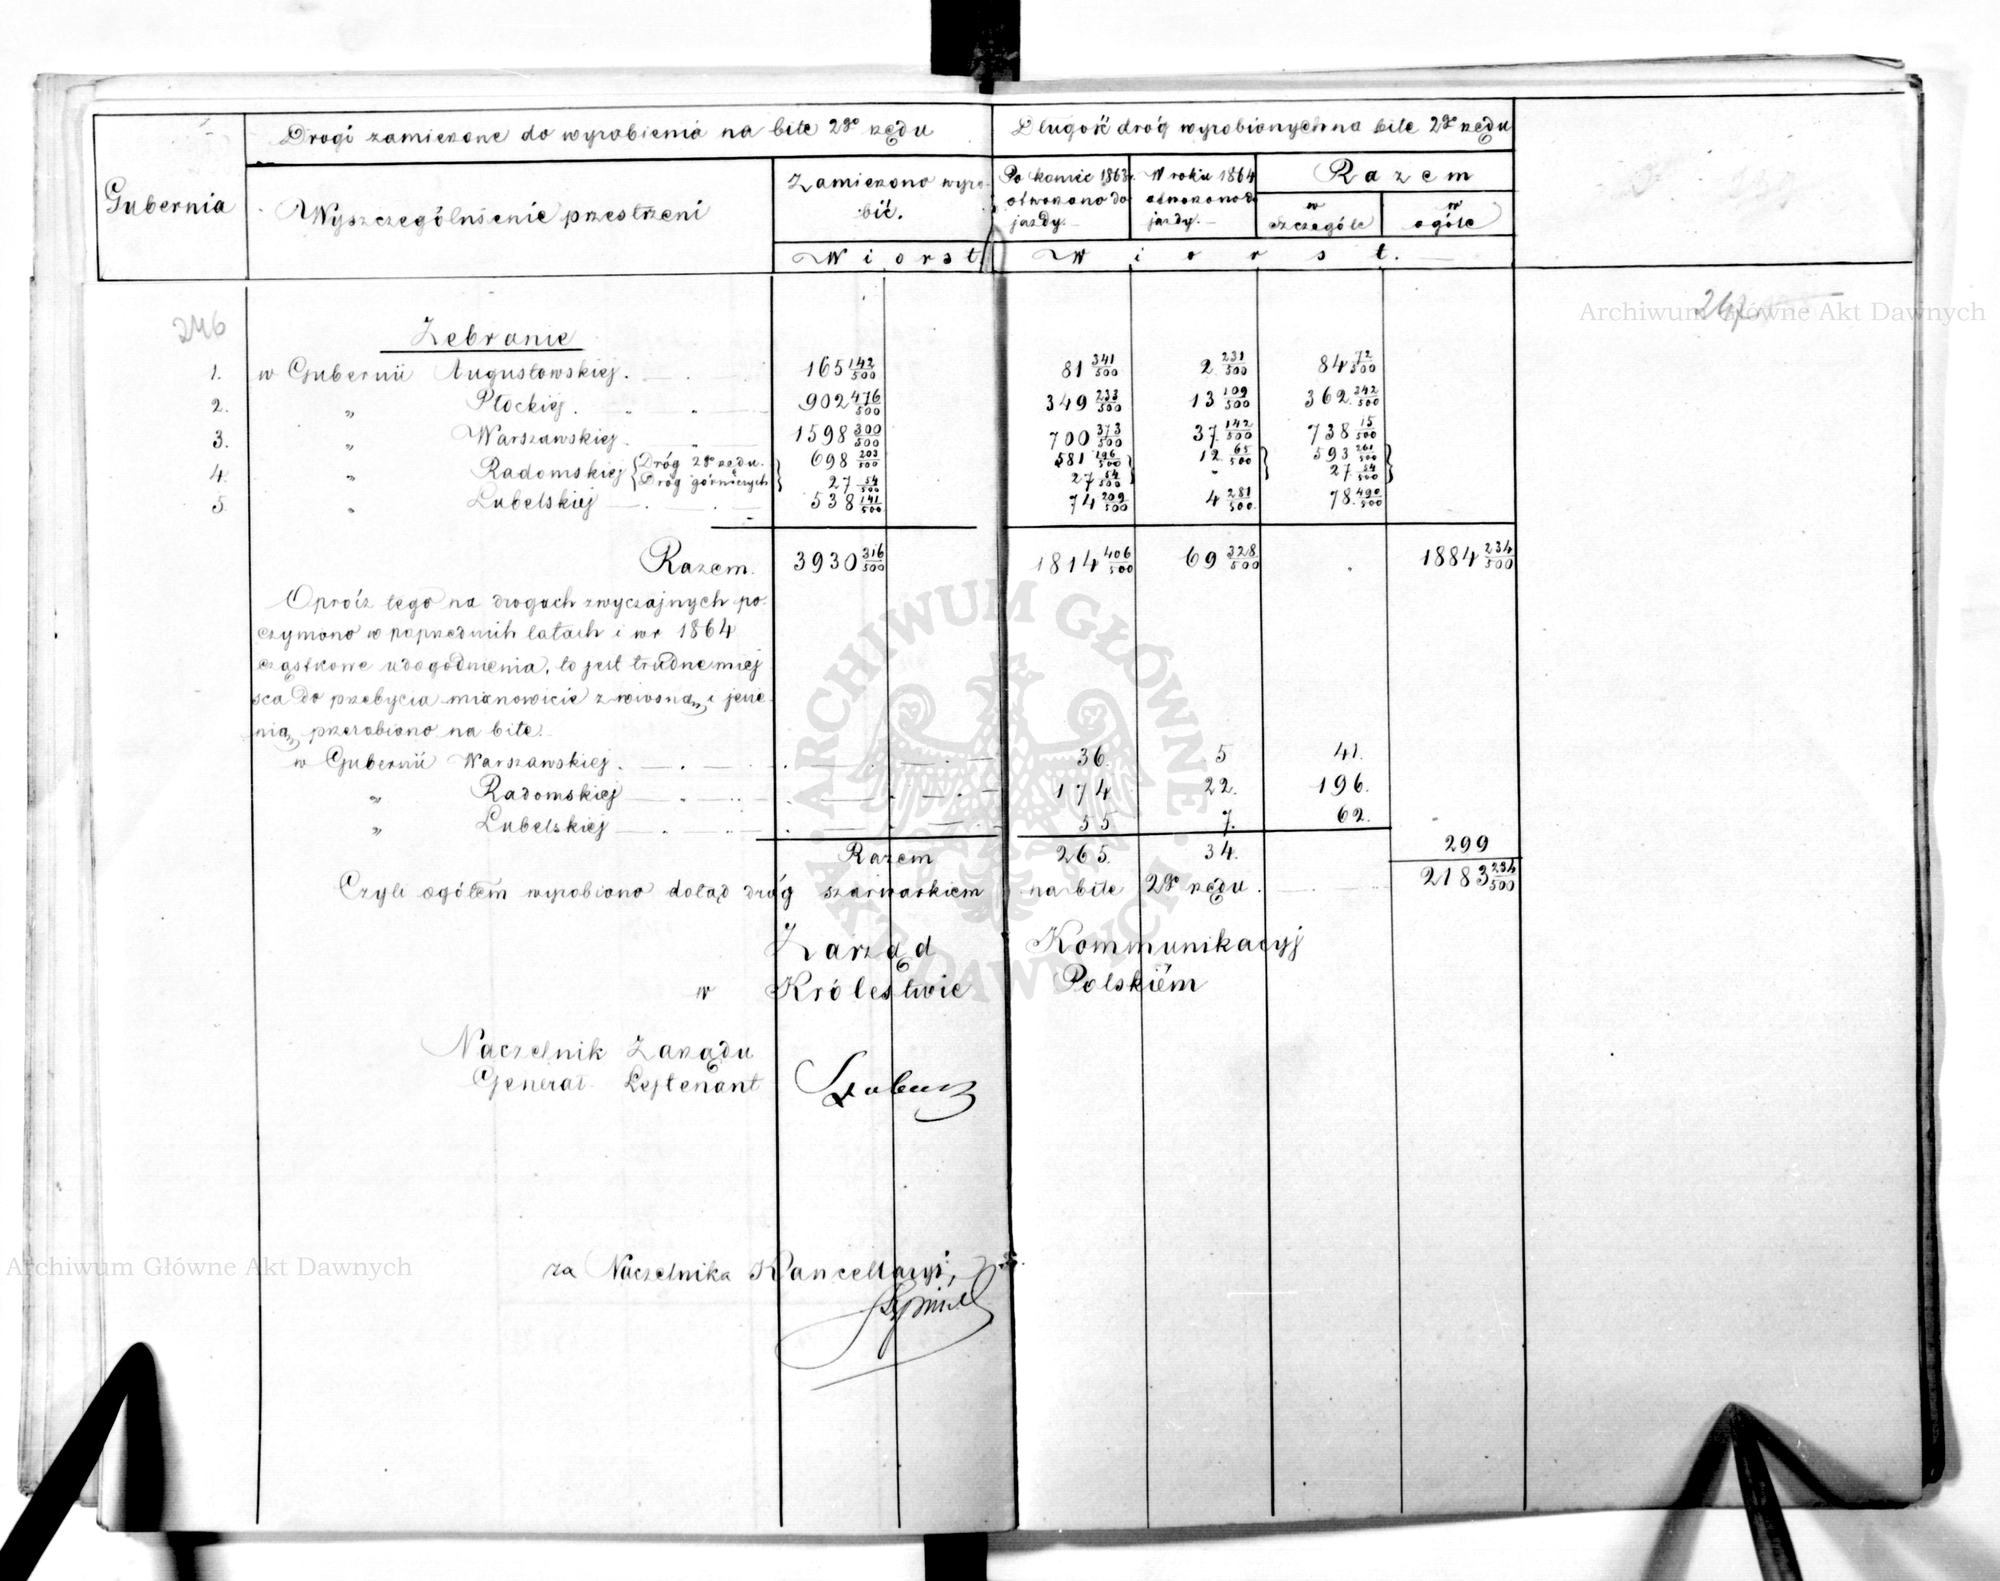 Drogi zamierzone do wyrobienia na bite 2go rzędu
Długość dróg wyrobionych na bite 2go rzędu
Gubernia
Wyszczególnienie przestrzeni
Zamierzono wyro-
bić.
Po koniec 1863 r.
otworzono do
jazdy.
W roku 1864
otworzono do
jazdy.
Razem
w
szczególe
w
ogóle
Wiorst
Wiorst.
246
247
Zebranie
1. w Gubernii Augustowskiej. 165 142/500 81 341/500 2 231/500 84 72/500
2. „ Płockiej. 902 476/500 349 233/500 13 109/500 362 342/500
3. „ Warszawskiej. 1598 300/500 700 373/500 37 142/500 738 15/500
4. „ Radomskiej { Dróg 2go rzędu. 698 203/500 581 196/500 12 65/500 593 261/500
Dróg górniczych 27 54/500 27 54/500 „ 27 54/500
5. „ Lubelskiej 538 141/500 74 209/500 4 281/500 78 490/500
Razem. 3930 316/500 1814 406/500 69 328/500 . 1884 234/500
Oprócz tego na drogach zwyczajnych po-
czyniono w poprzednich latach i w r 1864
cząstkowe udogodnienia, to jest trudne miej
sca do przebycia mianowicie z wiosną i jesie-
nią, przerobiono na bite.
w Gubernii Warszawskiej. 36. 5 41.
„ Radomskiej 174 22. 196.
„ Lubelskiej 55 7. 62.
Razem 265. 34. 299
Czyli ogółem wyrobiono dotąd dróg szarwarkiem na bite 2go rzędu. 2183 234/500
Zarząd Kommunikacyj
w Królestwie Polskiém
Naczelnik Zarządu
Generał Lejtenant
za Naczelnika Kancellaryi,
Archiwum Główne Akt Dawnych
Archiwum Główne Akt Dawnych
ARCHIWUM GŁÓWNE AKT DAWNYCH